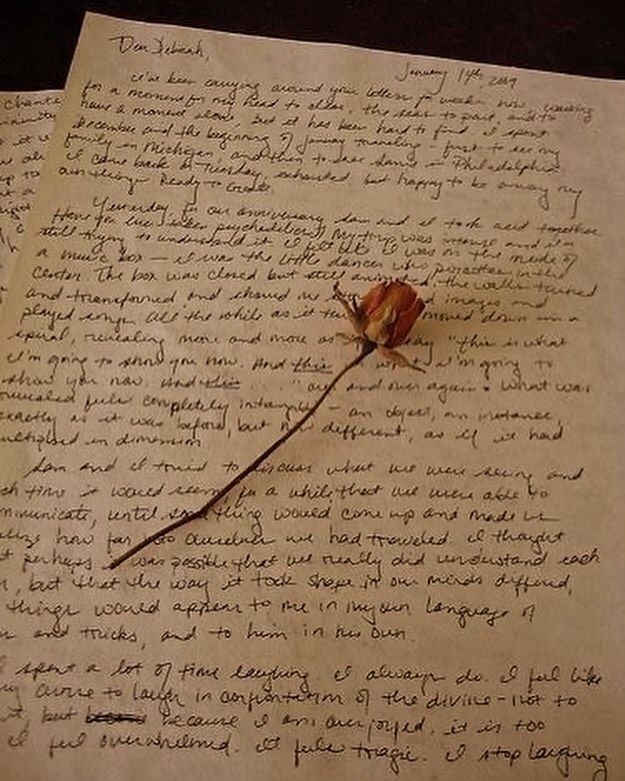 Dear Deborah,
January 14th, 2009
I've been carrying around your letter for weeks now, waiting
for a moment for my head to clear, the seas to part, and to
have a moment alone, but it has been hard to find. I spent
December and the beginning of January traveling - first to see my
family in Michigan, and then to see Sam's in Philadelphia.
I came back on Tuesday, exhausted, but happy to be among my
own things. Ready to create.
Yesterday, for our anniversary Sam and I took acid together.
Have you ever taken psychedelics? My trip was intense and I'm
still trying to understand it. I felt like I was on the inside of
a music box - I was the little dancer who pirouettes in the
center. The box was closed but still animated, the walls turned
and transformed and showed me images and
played songs. All the while as it moved down in a
spiral, revealing more and more as say "this is what
I'm going to show you now. And this is what I'm going to
show you now. And this ... " over and over again. What was
revealed feels completely intangible - an object, an instance,
exactly as it was before, but now different, as if it had
multiplied in dimension.
Sam and I tried to discuss what we were seeing and
each time it would seem, for a while that we were able to
communicate, until something would come up and made us
realize how far into ourselves we had traveled. I thought
perhaps it was possible that we really did understand each
, but that the way it took shape in our minds differed,
things would appear to me in my own language of
and tricks, and to him in his own.
I spent a lot of time laughing. I always do. I feel like
to laugh in confrontation of the divine - not to
it, but because I am overjoyed, it is too
I feel overwhelmed. It feels tragic. I stop laughing